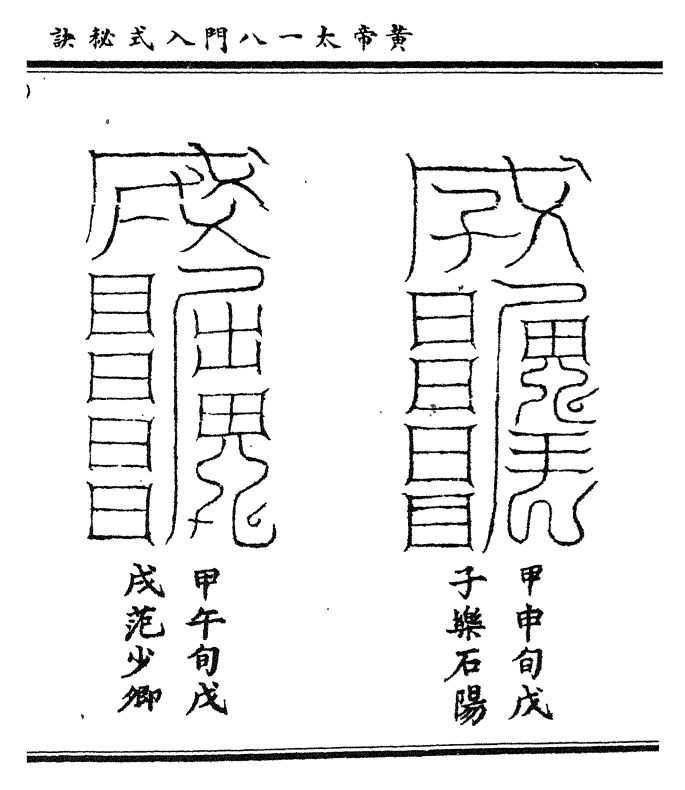 黃帝太一八門入式秘訣
甲申旬戊
子樂石陽
甲午旬戊
戌范少卿